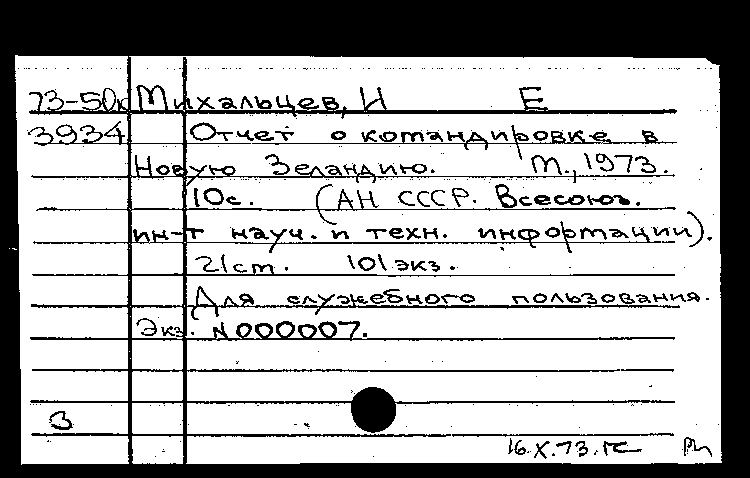 73-50к Михальцев, И Е
3934 Отчет о командировке в
Новую Зеландию. М., 1973.
10с. (АН СССР. Всесоюз.
ин-т науч. и техн. информации).
21см. 101экз.
Для служебного пользования.
Экз. N000007.
3
16.X.73.